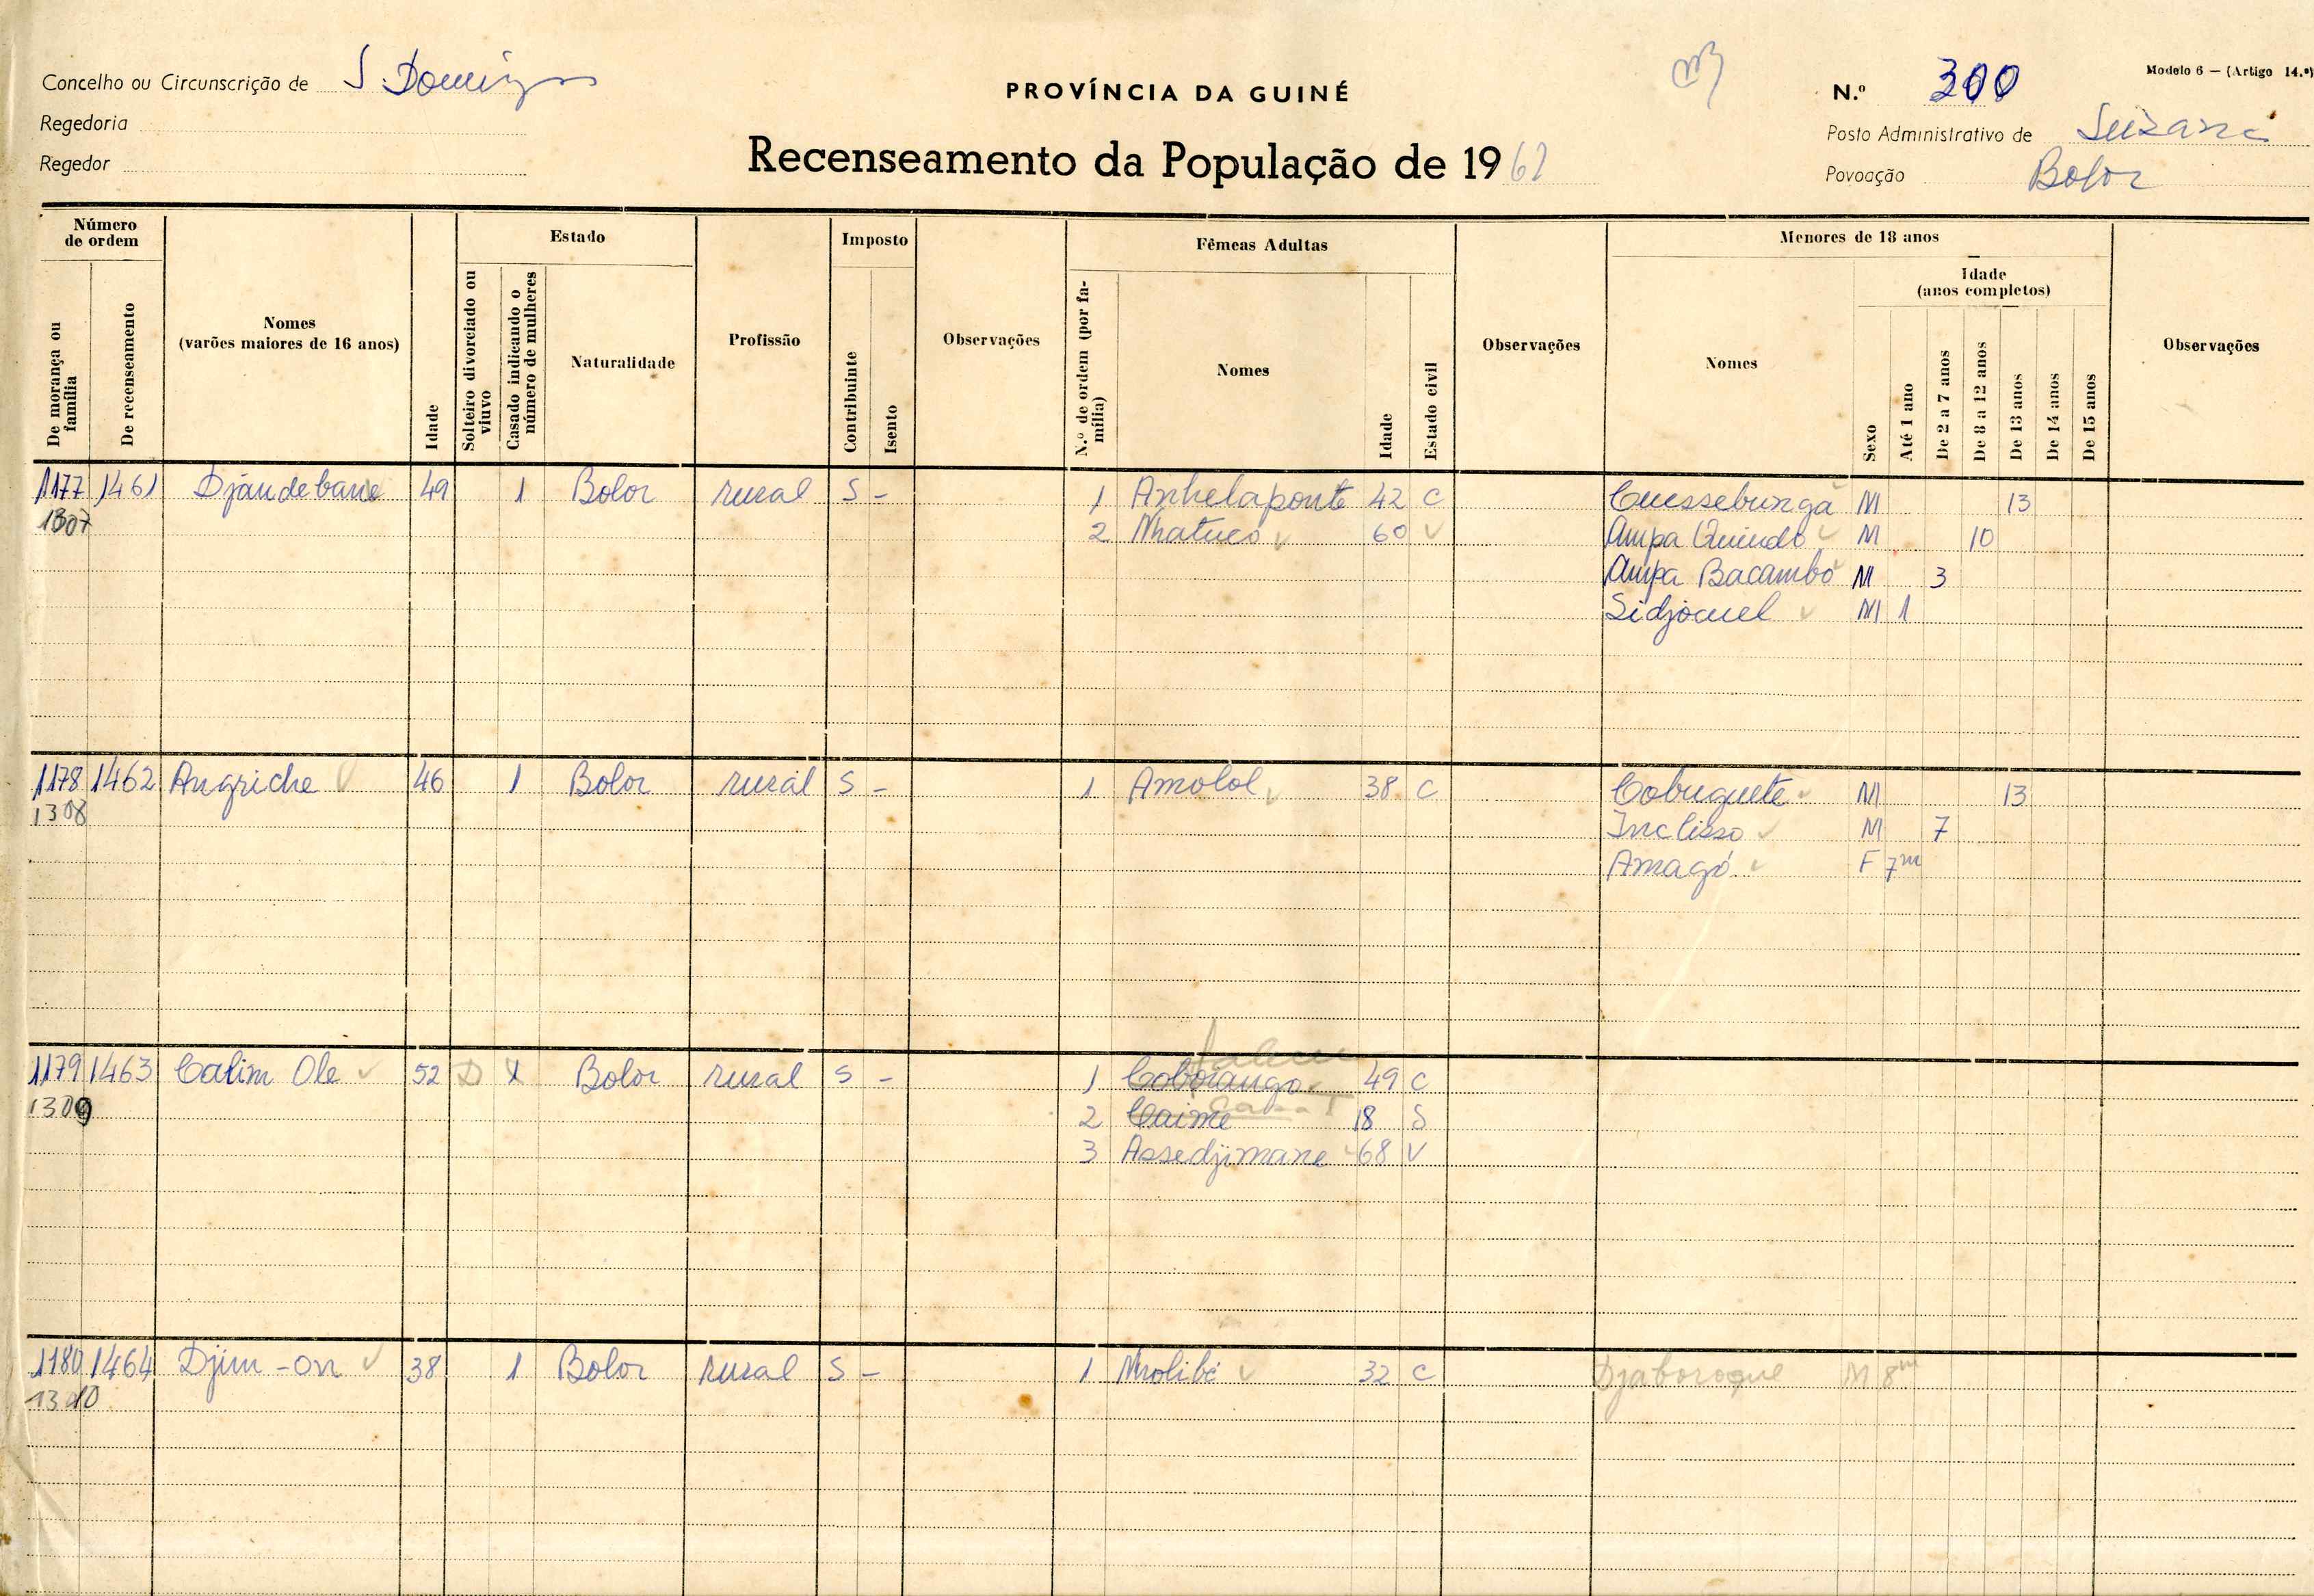 Concelho ou Circunscrição de S. Domingos
PROVÍNCIA DA GUINÉ
N.º 300
Modelo 6 — (Artigo 14.º)
Regedoria
Posto Administrativo de Suzana
Regedor
Recenseamento da População de 1962
Povoação Bolor
Número de ordem
De morança ou família
De recenseamento
Nomes
(varões maiores de 16 anos)
Idade
Estado
Solteiro divorciado ou viuvo
Casado indicando o número de mulheres
Naturalidade
Profissão
Imposto
Contribuinte
Isento
Observações
Fêmeas Adultas
N.º de ordem (por família)
Nomes
Idade
Estado civil
Observações
Menores de 18 anos
Nomes
Sexo
Idade
(anos completos)
Até 1 ano
De 2 a 7 anos
De 8 a 12 anos
De 13 anos
De 14 anos
De 15 anos
Observações
1177 1461 Djandebane 49 1 Bolor rural S - 1 Anhelaponte 42 C Cuessebunga M 13
1307 2 Nhatuco V 60 V Ampa Quindo M 10
Ampa Bacambo M 3
Sidjouel M 1
1178 1462 Angriche 46 1 Bolor rural S - 1 Amolol 38 C Cobuquete M 13
1308 Inclisso M 7
Amagó F 7m
1179 1463 Calim Ole 52 D X Bolor rural S - 1 Coborango 49 C
1309 2 Caime 18 S
3 Assedjimane 68 V
1180 1464 Djim-on 38 1 Bolor rural S - 1 Nholibé 32 C Djaboroque M 8m
1310